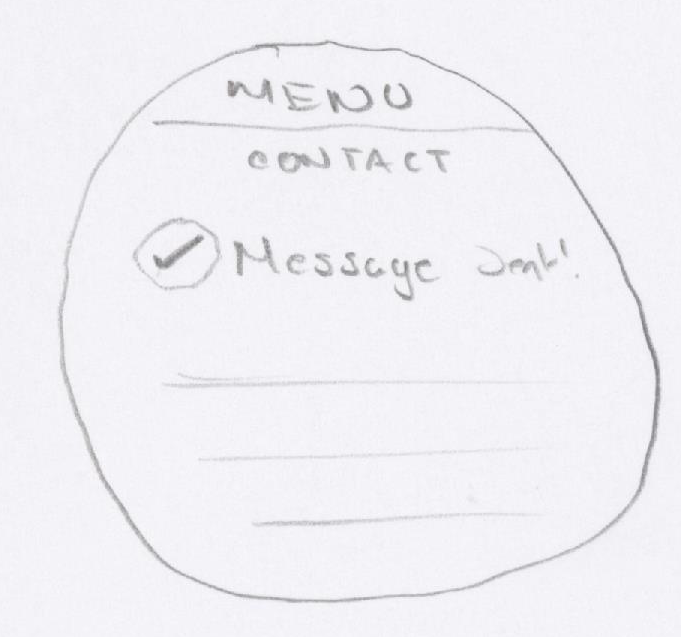 MENU
CONTACT
Message Sent!